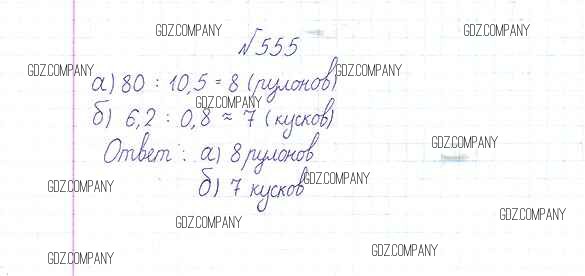 GDZ.COMPANY
GDZ.COMPANY
№555
GDZ.COMPANY
GDZ.COMPANY
а) 80 : 10,5 = 8 (рулонов)
GDZ.COMPANY
б) 6,2 : 0,8 ≈ 7 (кусков)
GDZ.COMPANY
Ответ : а) 8 рулонов
б) 7 кусков
GDZ.COMPANY
GDZ.COMPANY
GDZ.COMPANY
GDZ.COMPANY
GDZ.COMPANY
GDZ.COMPANY